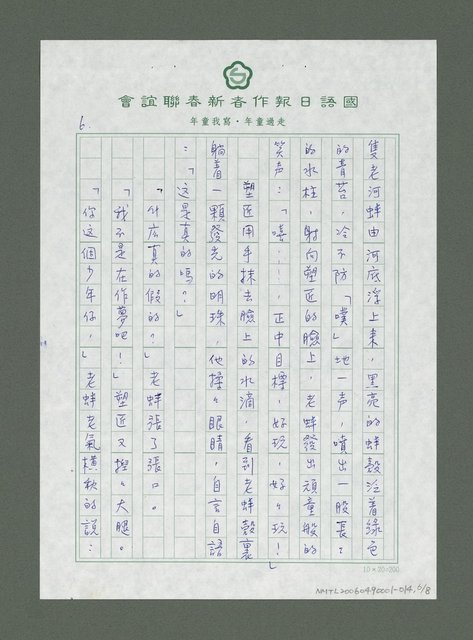 國語日報作者新春聯誼會
走過童年・寫我童年
6.
隻老河蚌由河底浮上來，黑亮的蚌殼沿着綠色
的青苔，冷不防「噗」地一声，噴出一股長長
的水柱，射向塑匠的臉上，老蚌發出頑童般的
笑声：「嘻！！正中目標，好玩，好好玩！」
塑匠用手抹去臉上的水滴，看到老蚌殼裏
躺着一顆發光的明珠，他揉揉眼睛，自言自語
：「這是真的嗎？」
「什広真的假的？」老蚌張了張口。
「我不是在作夢吧！」塑匠又揑揑大腿。
「你這個少年仔，」老蚌老氣橫秋的說：
10×20=200
NMTL20060490001-014, 6/8